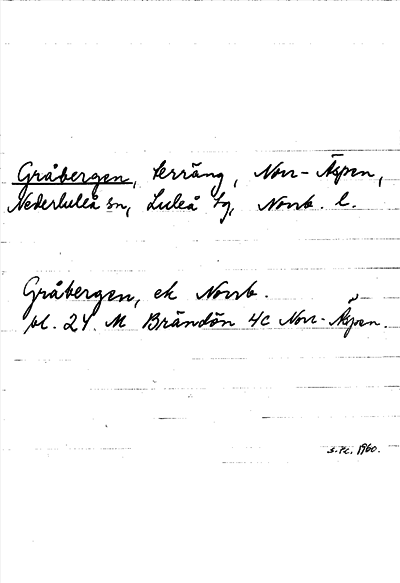 Gråbergen, terräng, Norr-Äspen,
Nederluleå sn, Luleå tg, Norrb. l.
Gråbergen, ek Norrb.
bl. 24 M Brändön 4c Norr-Äspen.
1960.